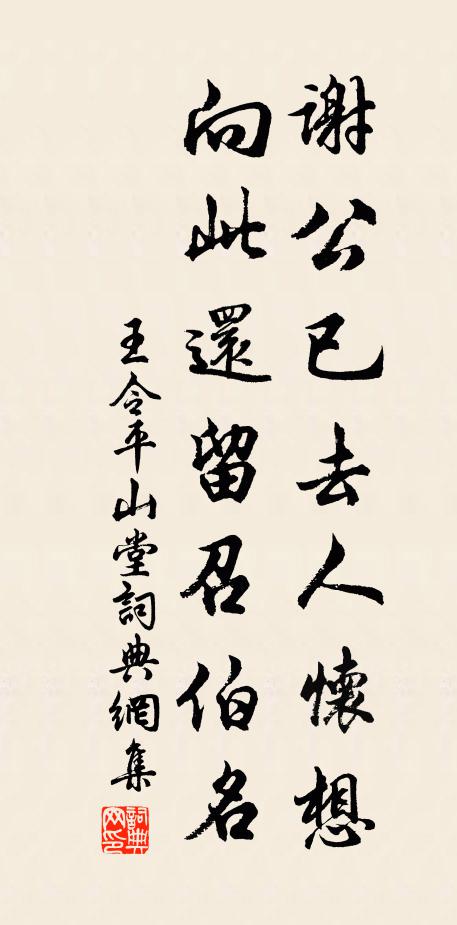 謝公已去人懷想
向此還留召伯名
王令平山堂詞典網集
詞典
网印